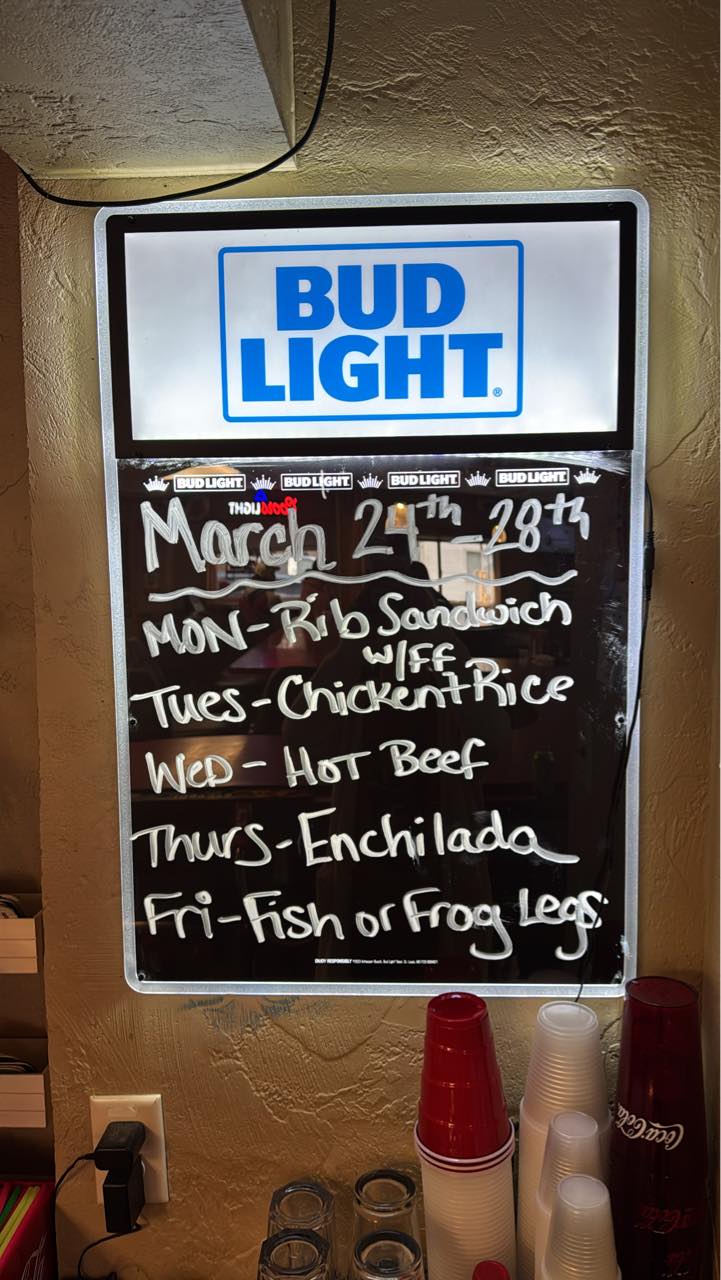 BUD
LIGHT®
BUD LIGHT. BUD LIGHT. BUD LIGHT. BUD LIGHT.
March 24th-28th
MON-Rib Sandwich
w/FF
Tues-Chicken+Rice
WED-HOT Beef
Thurs-Enchilada
Fri-Fish or Frog Legs
ENJOY RESPONSIBLY
Coca-Cola